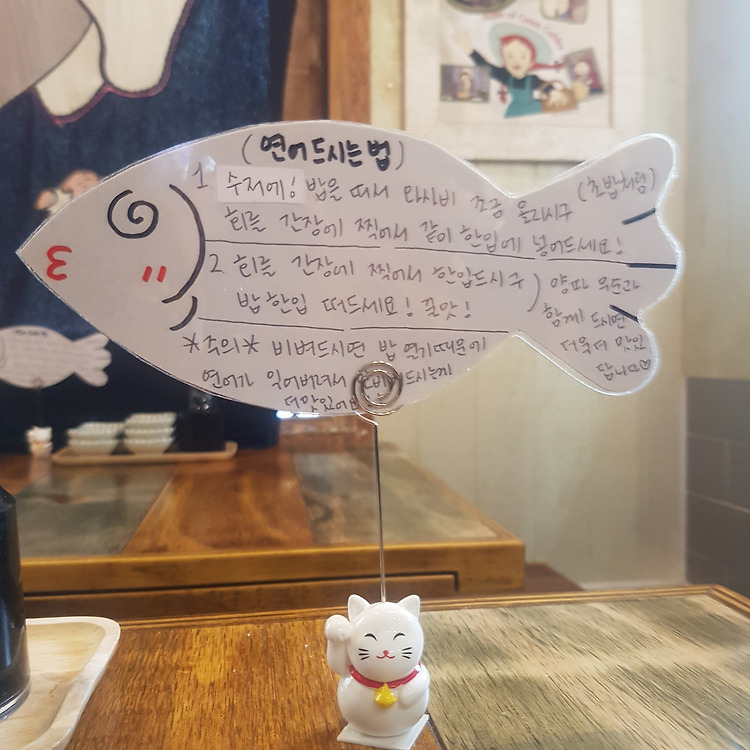 (연어드시는법)
1. 수저에! 밥을 떠서 와사비 조금 올리시구 (초밥처럼)
회를 간장에 찍어서 같이 한입에 넣어드세요!
2 회를 간장에 찍어서 한입드시구
밥한입 떠드세요! 꿀맛!
양파 무순과
함께 드시면
더욱더 맛있
답니다♡
*주의* 비벼드시면 밥 열기때문에
연어가 익어버려서 드시는게
더맛있어